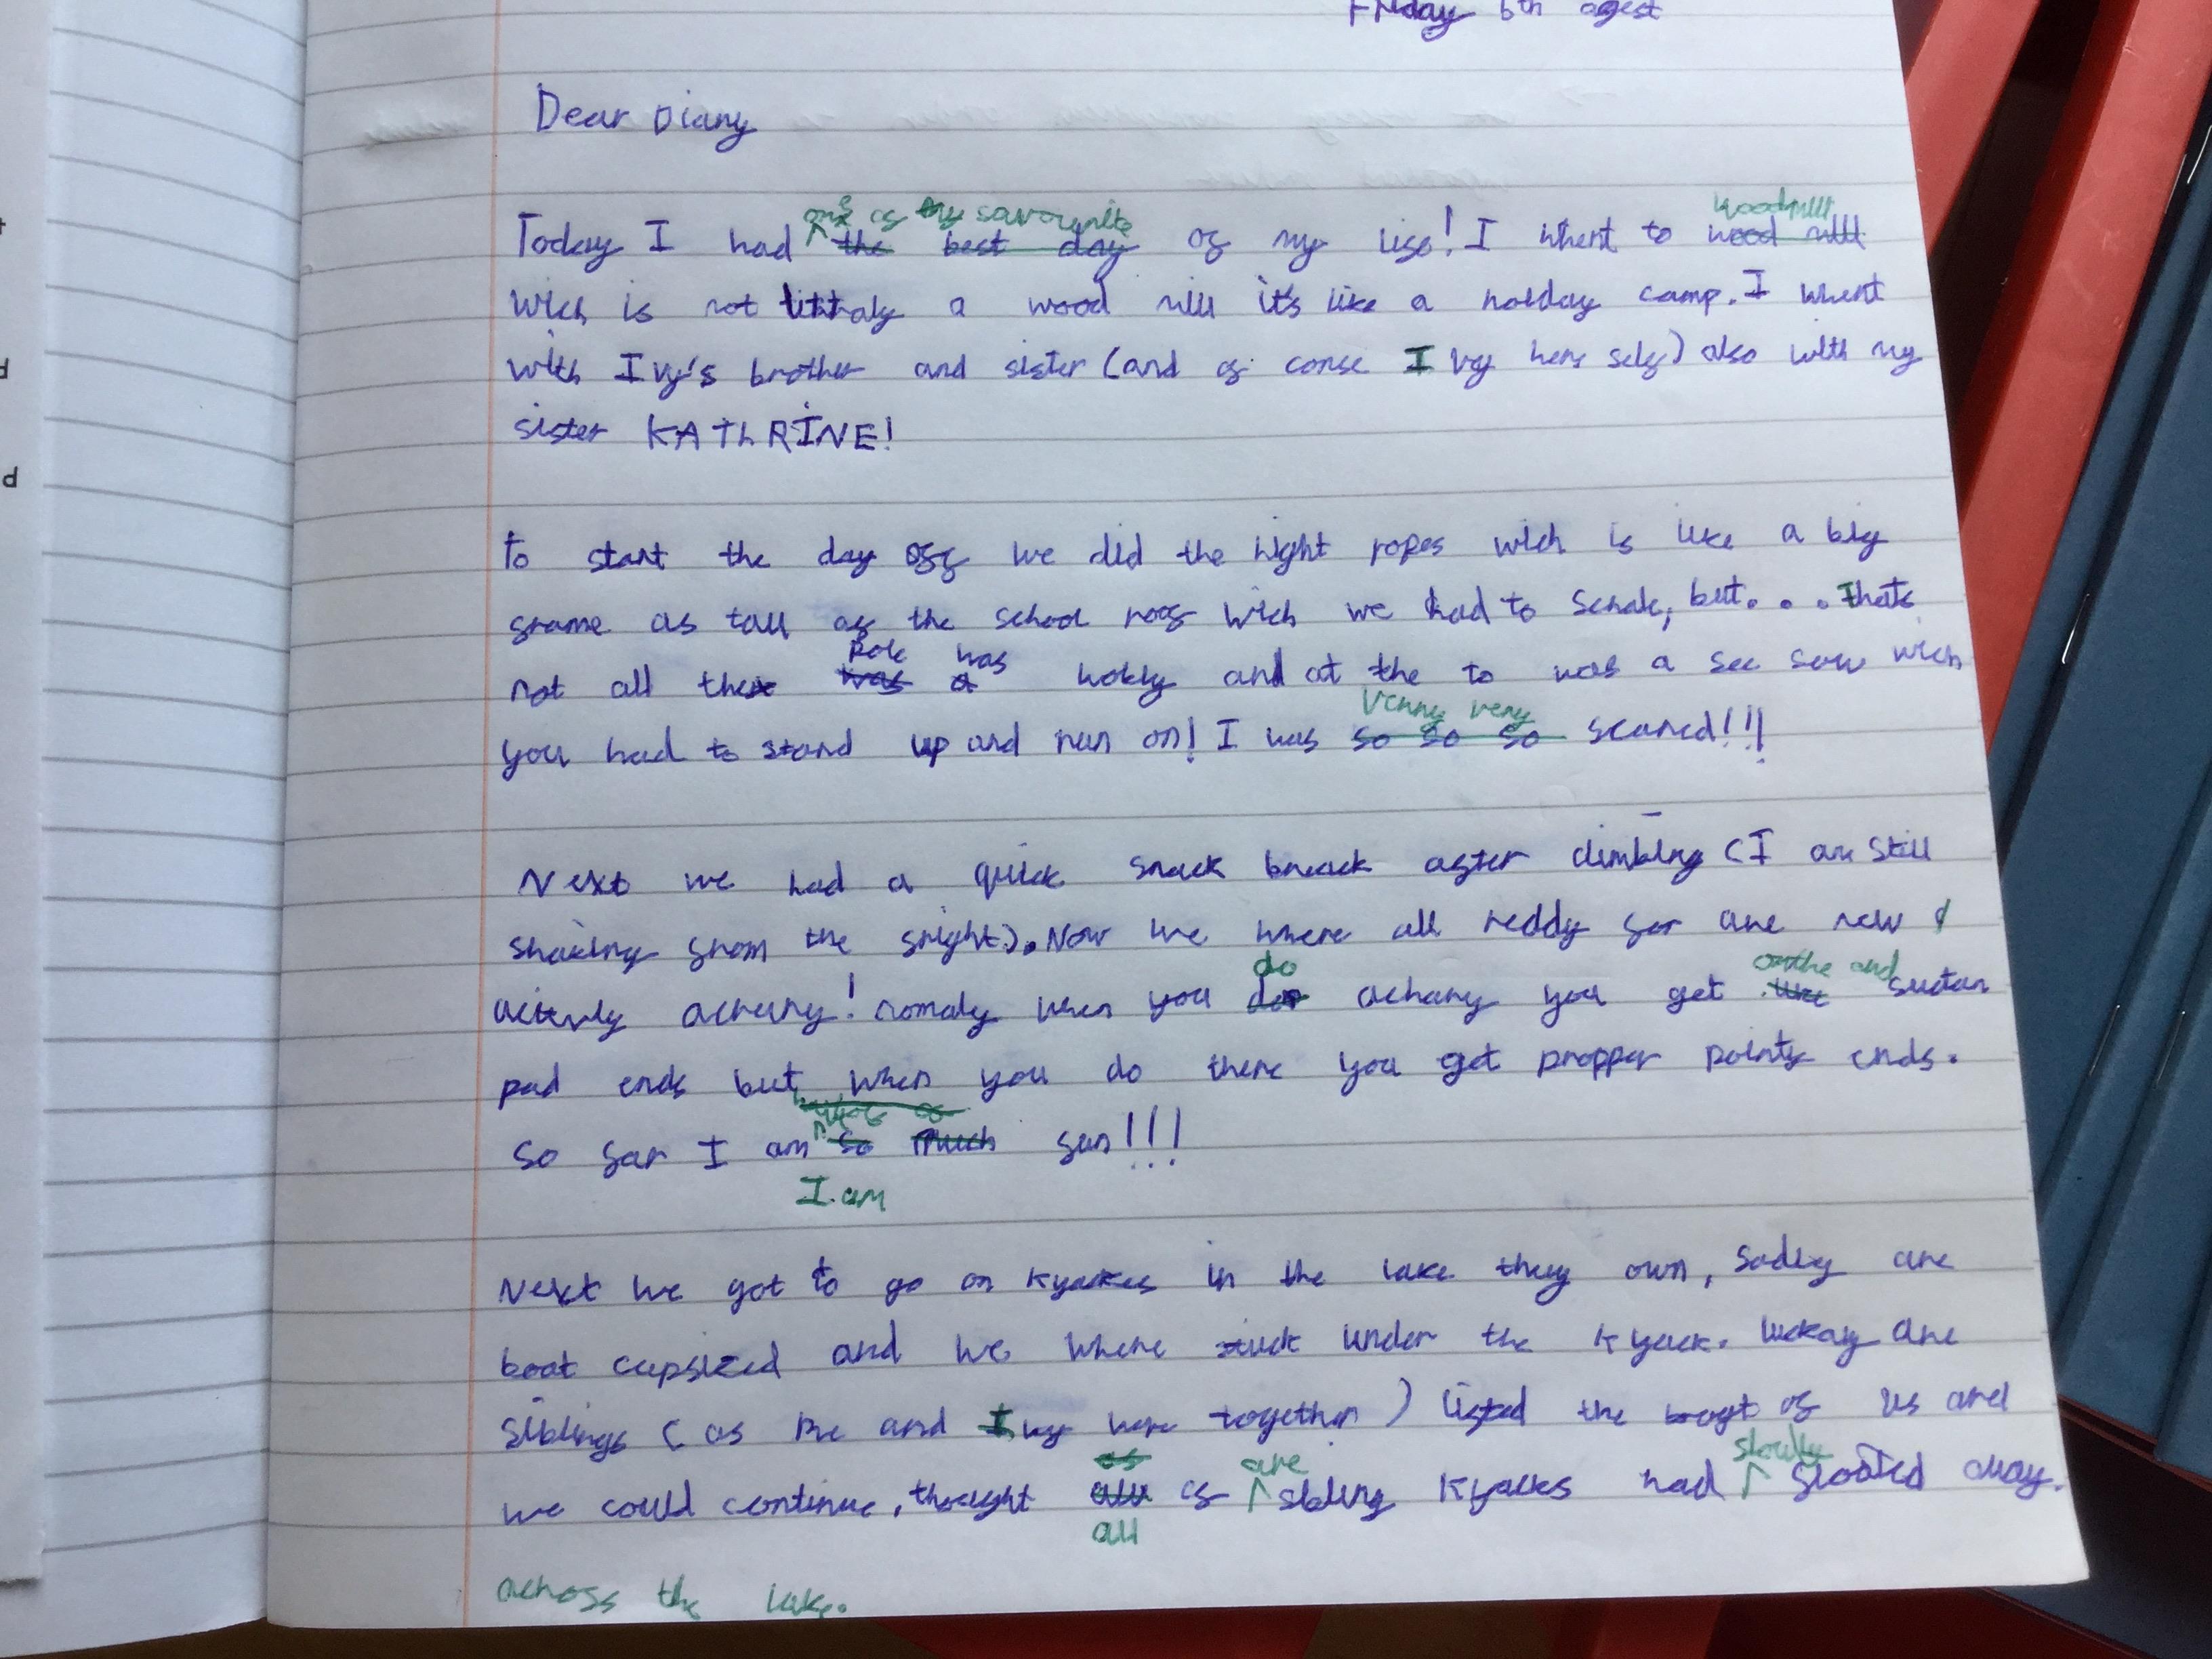 Friday 6th agest
Dear Diary
one of my favourite woodmill
Today I had the best day of my life! I whent to wood mill
wich is not litthaly a wood mill it's like a holday camp. I whent
with Ivy's brother and sister (and of corse Ivy hers self) also with my
sister KATHRINE!
To start the day off we did the hight ropes wich is like a big
frame as tall as the school roof wich we had to scale, but... thats
not all the Pole was wobly and at the to was a see saw wich
very very
you had to stand up and run on! I was so so so scared!!!
Next we had a quick snack breack after climbing (I am still
shaking from the fright). Now we where all reddy for are new
do on the end
activly acheruy! nomaly when you do acharry you get like suctan
pad ends but when you do there you get propper pointy ends.
So far I am so much fun!!!
I am
Next we got to go on Kyackes in the lake they own, sadly are
boat capsized and we where stuck under the Kyack. luckay are
siblings (as me and Ivy were together) lifted the boat of us and
as are slowlly
we could continue, thought all of sibling Kyacks had floated away.
all
across the lake.